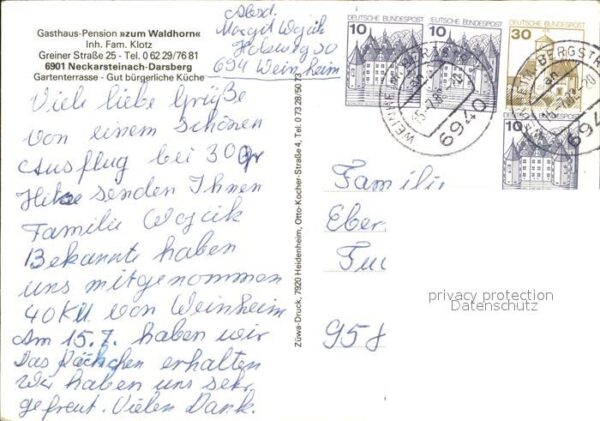 Gasthaus-Pension »zum Waldhorn«
Inh. Fam. Klotz
Greiner Straße 25 - Tel. 0 62 29/76 81
6901 Neckarsteinach-Darsberg
Gartenterrasse - Gut bürgerliche Küche
Absd.
Margit Wojcik
694 Weinheim
Viele liebe Grüße
von einem schönen
Ausflug bei 30 gr
Hitze senden Ihnen
Familie Wojcik
Bekannte haben
uns mitgenommen
40 KM von Weinheim
Am 15.7. haben wir
Das Päckchen erhalten
Wir haben uns sehr
gefreut. Vielen Dank.
Züwa-Druck, 7920 Heidenheim, Otto-Kocher-Straße 4, Tel. 0 73 28/50 73
10 DEUTSCHE BUNDESPOST
10 DEUTSCHE BUNDESPOST
30 DEUTSCHE BUNDESPOST
10
WEINHEIM, BERGSTR
6940
BERGSTR
694
Famili
Eber
958
privacy protection
Datenschutz